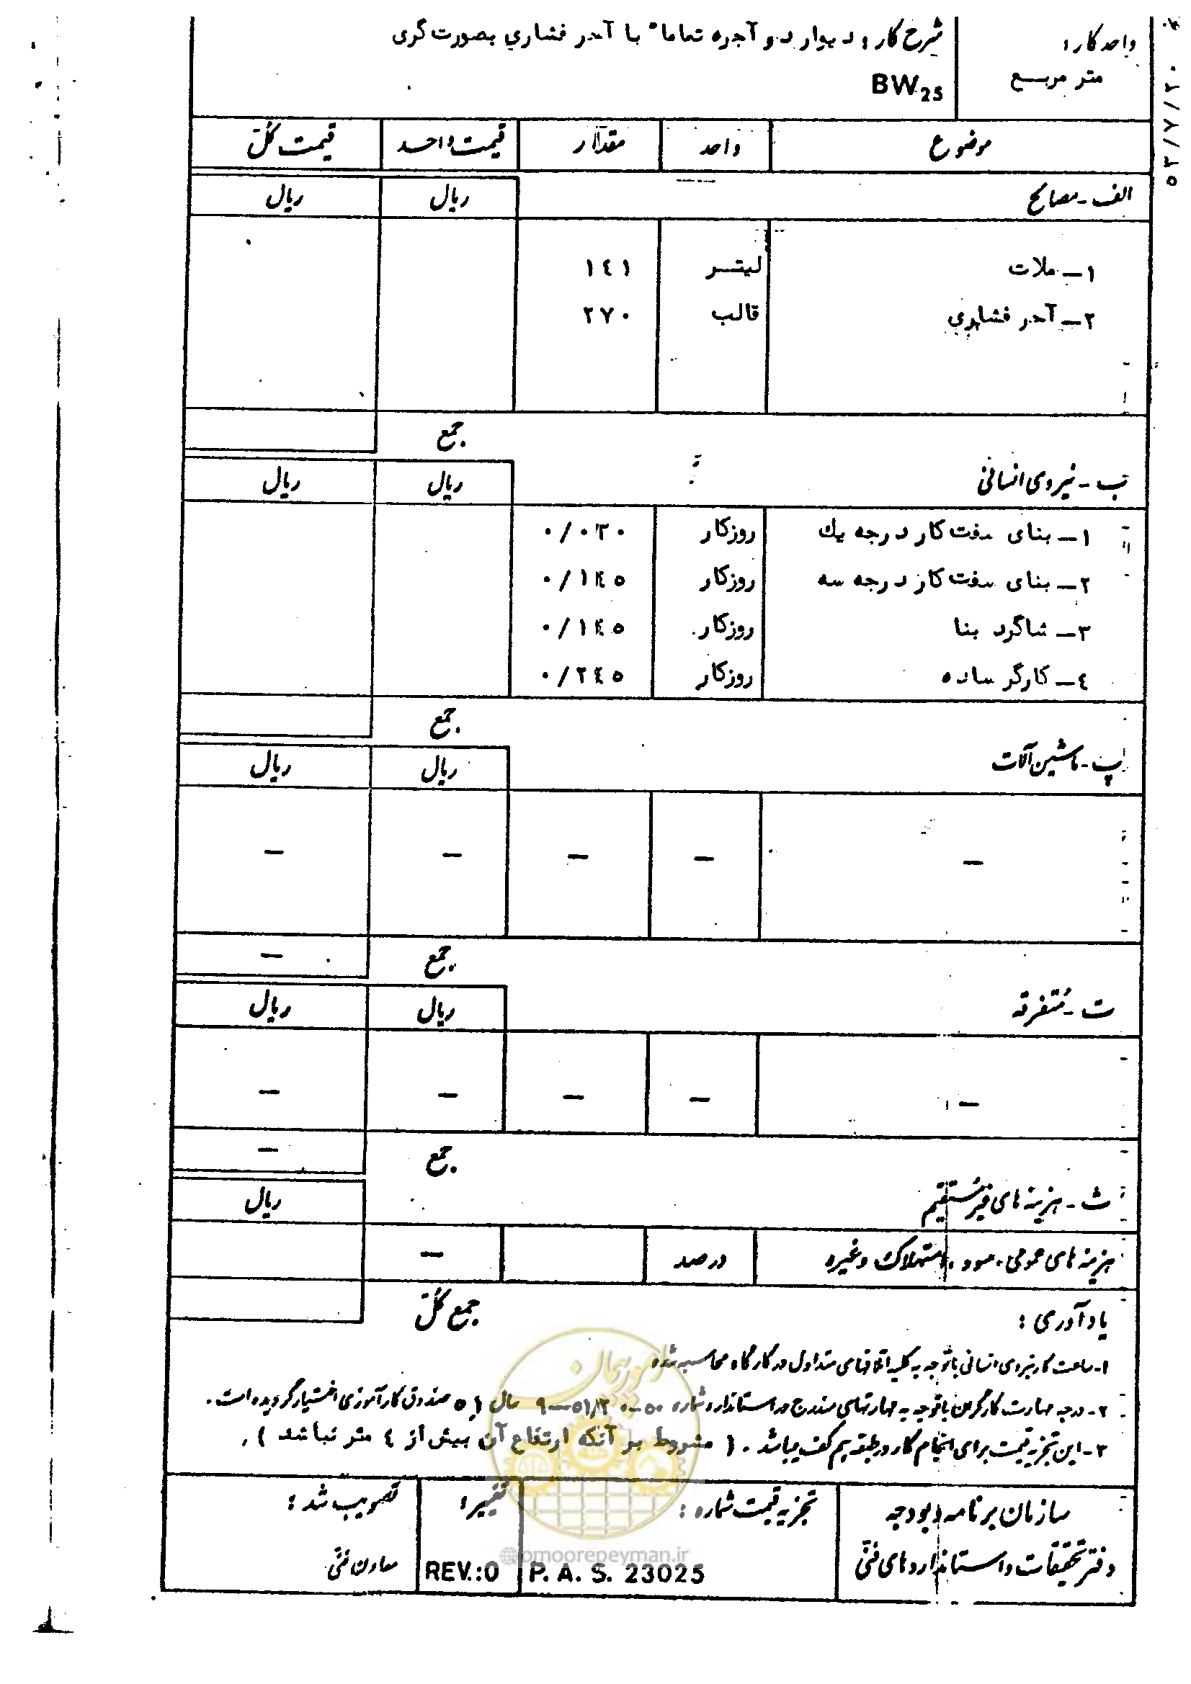 واحد کار :
متر مربع
شرح کار : دیوار دو آجره تماماً با آجر فشاری بصورت گری
BW25
۵۳/۷/۲۰
موضوع واحد مقدار قیمت واحد قیمت کلّ
الف - مصالح ریال ریال
۱ – ملات لیتر ۱٤۱
۲ – آجر فشاری قالب ۲۷۰
جمع
ب - نیروی انسانی ریال ریال
۱ – بنای سفت کار درجه یك روزکار ۰/۰۲۰
۲ – بنای سفت کار درجه سه روزکار ۰/۱٤۵
۳ – شاگرد بنا روزکار ۰/۱٤۵
٤ – کارگر ساده روزکار ۰/۲٤۵
جمع
پ - ماشین آلات ریال ریال
– – – – –
جمع –
ت - متفرقه ریال ریال
– – – – –
جمع –
ث - هزینه های غیر مستقیم ریال
هزینه های عمومی ، سود ، استهلاک و غیره درصد –
جمع کلّ
یادآوری :
۱- ساعت کار نیروی انسانی با توجه به کلیه اتلافهای متداول در کارگاه محاسبه شده
۲- درجه مهارت کارگران با توجه به مهارتهای مندرج در استاندارد شماره ۵۰–۰۰ ۵۱/۲–۹ سال ۵۱ صندوق کارآموزی اختیار گردیده است .
۳- این تجزیه قیمت برای انجام کار در طبقه هم کف میباشد . ( مشروط بر آنکه ارتفاع آن بیش از ٤ متر نباشد ) .
امور پیمان
@omoorepeyman.ir
سازمان برنامه و بودجه
دفتر تحقیقات و استانداردهای فنّی
تجزیه قیمت شماره :
P. A. S. 23025
تغییر :
REV.:0
تصویب شد :
معاون فنّی